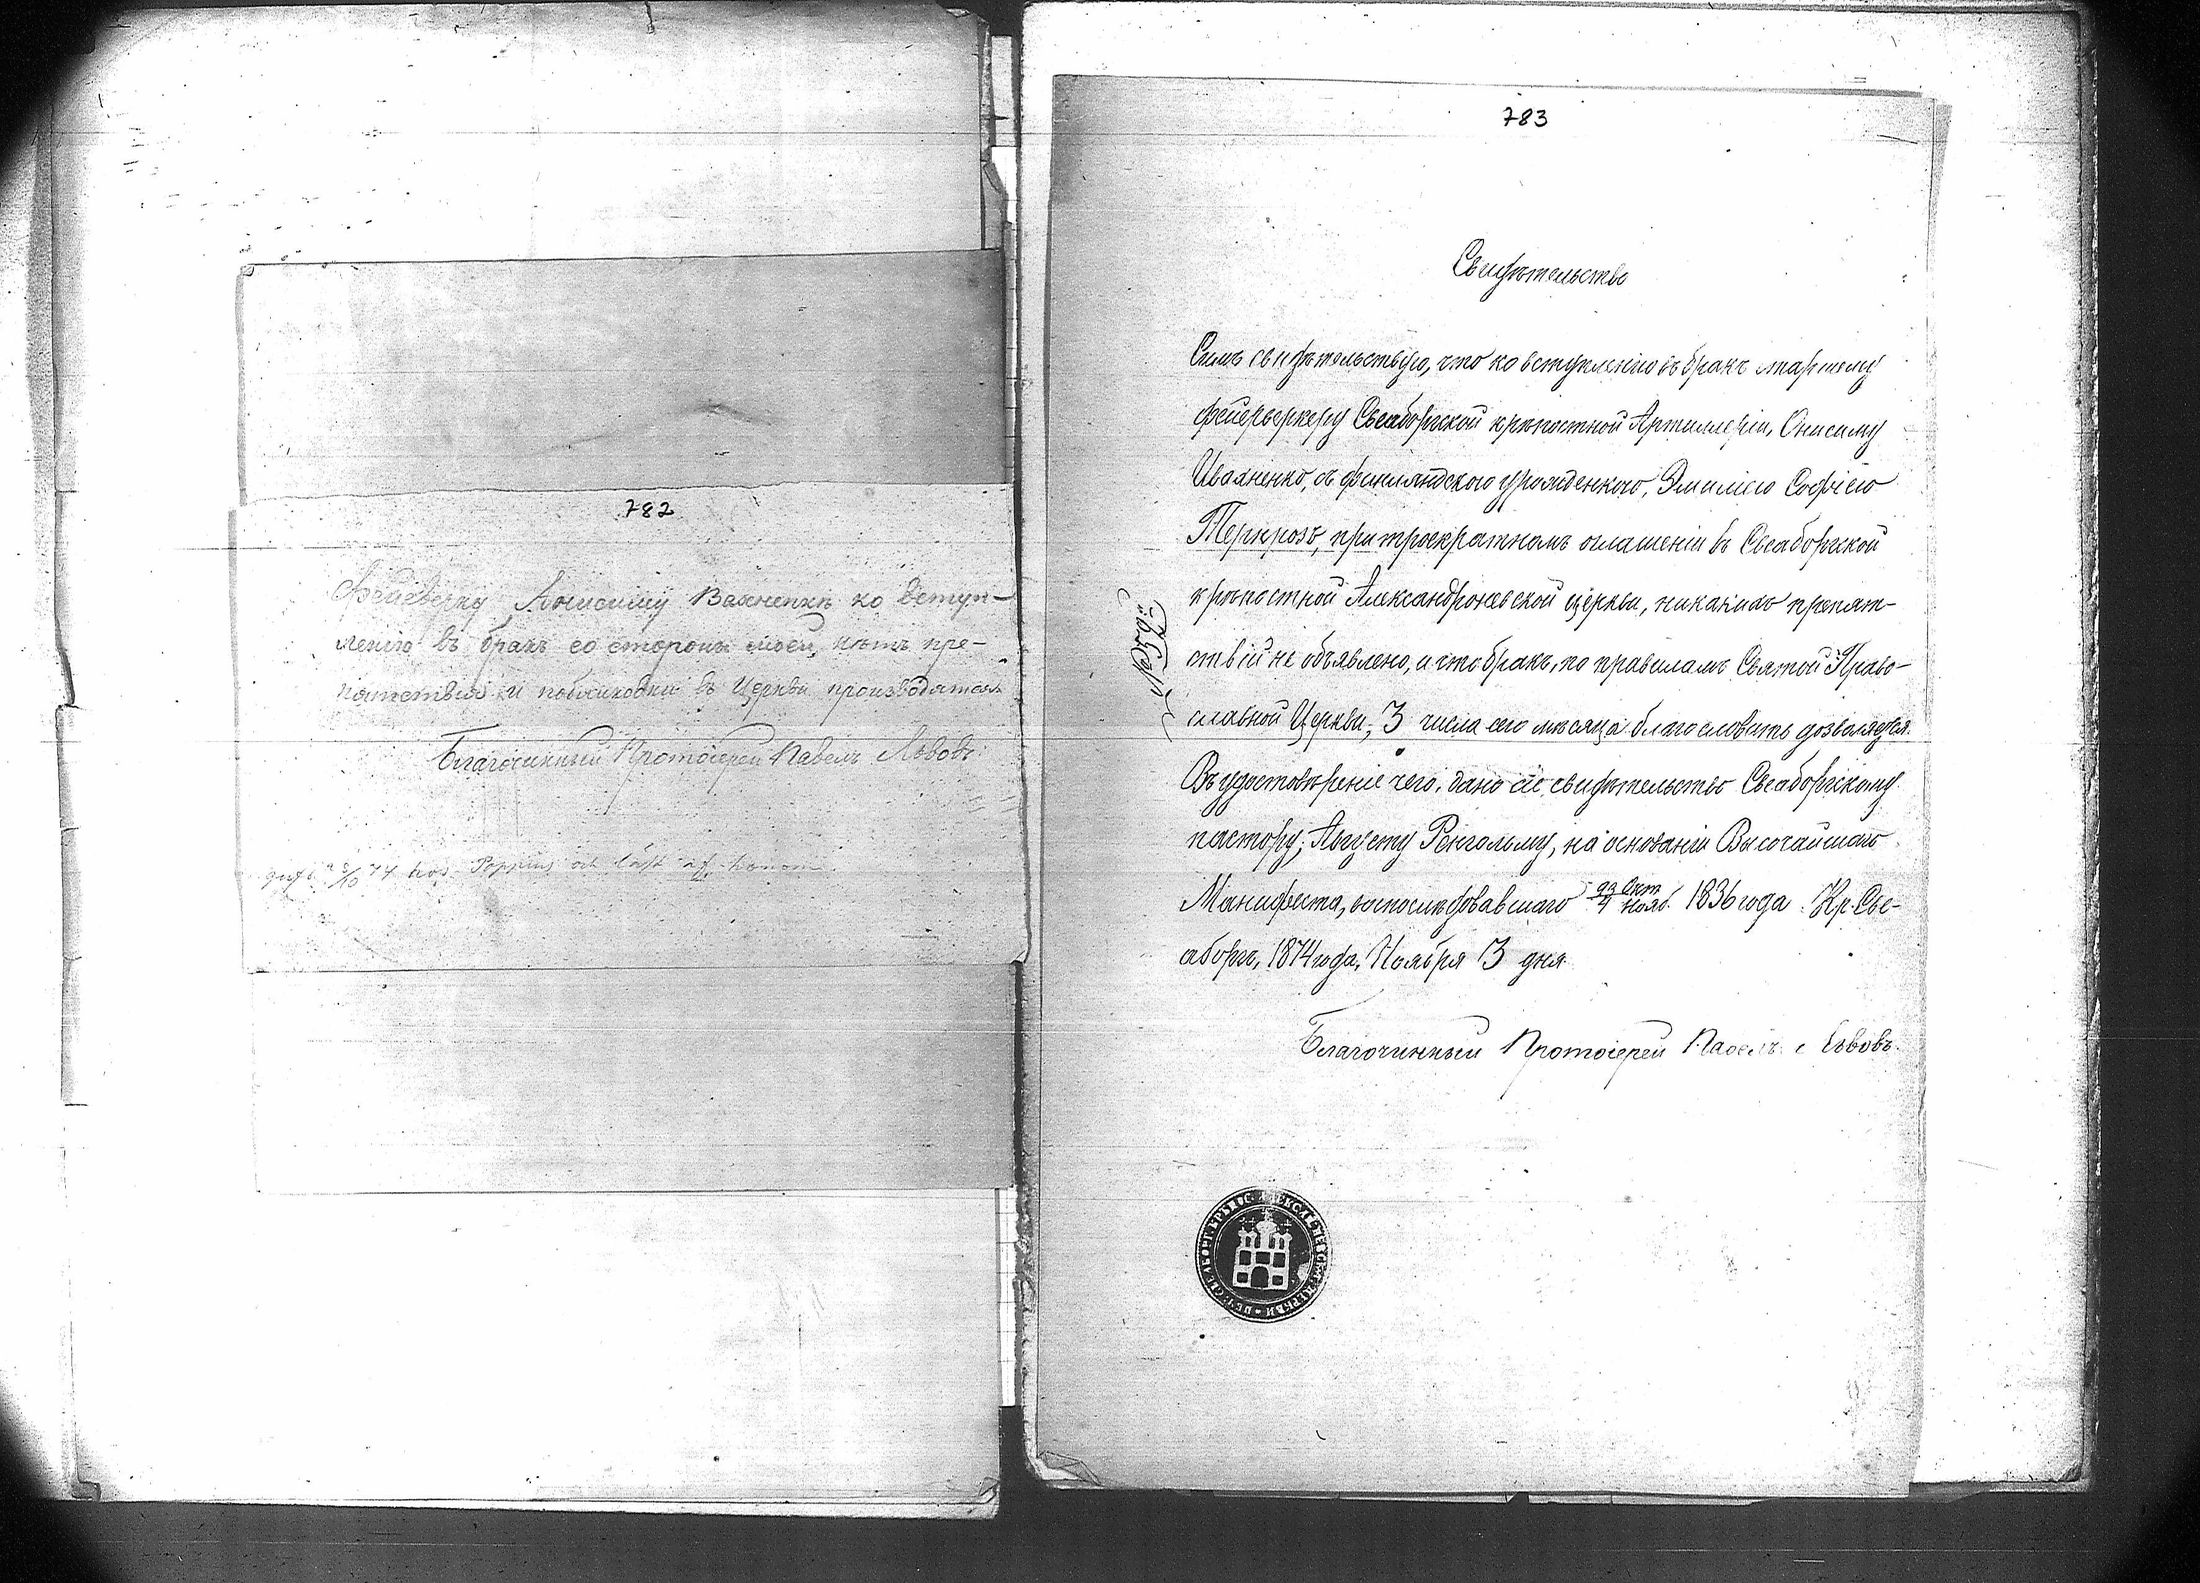 782
Фейверку Анисиму Вахненкѣ ко вступ-
ленію въ бракъ со стороны моей, нѣтъ пре-
пятствія и публикаціи въ Церкви производятся
Благочинный Протоіерей Павелъ Львовъ
74 hos Poppius och
783
Свидѣтельство
Симъ свидѣтельствую, что ко вступленію въ бракъ старшему
фейерверкеру Свеаборгской крѣпостной Артиллеріи, Онисиму
Иваненко, съ финляндскою уроженкою, Эмиліею Софіею
Тернрозъ, при троекратномъ оглашеніи въ Свеаборгской
крѣпостной Александроневской церкви, никакихъ препят-
ствій не объявлено, и что бракъ, по правиламъ Святой Право-
славной Церкви, 3 числа сего мѣсяца благословить дозволяется.
Въ удостовѣреніе чего, дано сіе свидѣтельство Свеаборгскому
пастору, Августу Ренгольму, на основаніи Высочайшаго
Манифеста, воспослѣдовавшаго 23 Окт / 4 Нояб. 1836 года. Кр. Све-
аборгъ, 1874 года, Ноября 3 дня
Благочинный Протоіерей Павелъ Львовъ.
№ 359